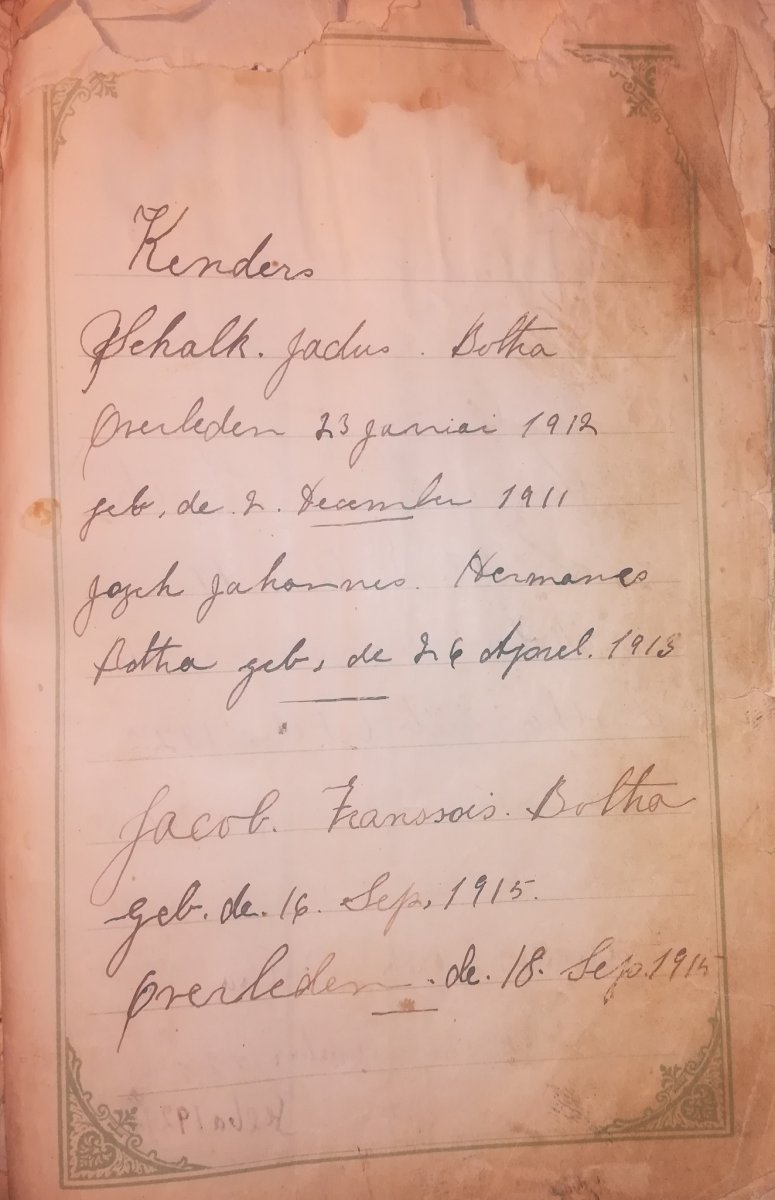 Kenders
Schalk. Jadus. Botha
Overleden 23 Janiai 1912
geb, de 2. December 1911
Jozeh Johannes. Hermanes
Botha geb, de 26 Aprel. 1913
Jacob. Franssois. Botha
geb. de. 16. Sep, 1915.
Overleden. de. 18. Sep. 1915